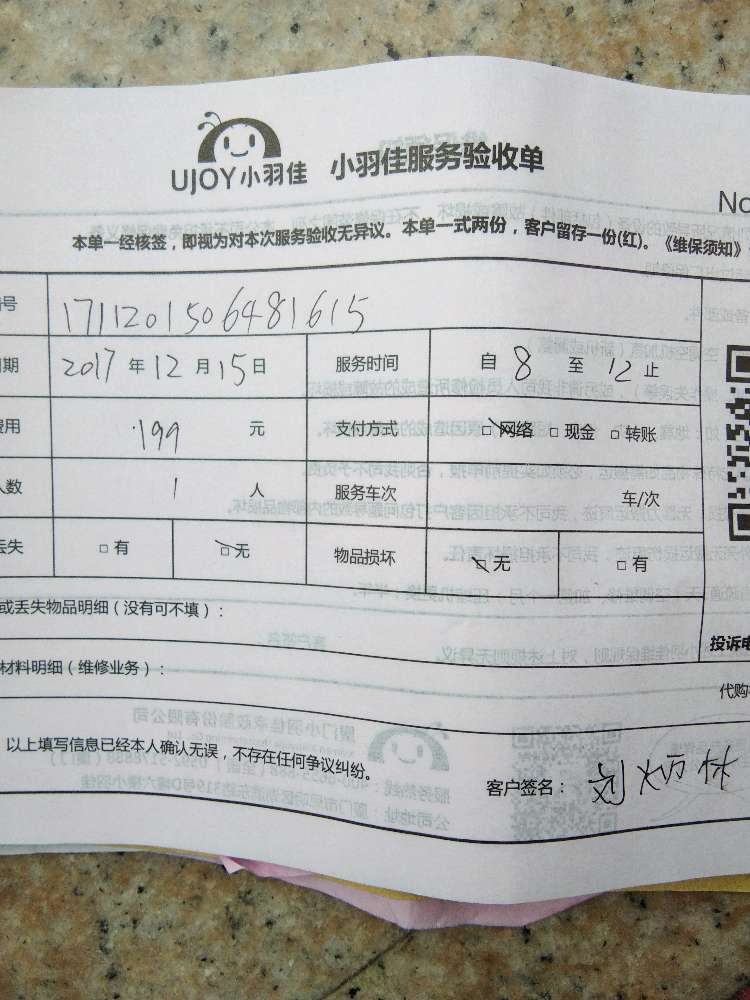 UJOY小羽佳 小羽佳服务验收单
No
本单一经核签，即视为对本次服务验收无异议。本单一式两份，客户留存一份(红)。《维保须知》
号 1711201506481615
期 2017 年 12 月 15 日 服务时间 自 8 至 12 止
费用 199 元 支付方式 □ 网络 □ 现金 □ 转账
人数 1 人 服务车次 车/次
丢失 □ 有 □ 无 物品损坏 □ 无 □ 有
或丢失物品明细（没有可不填）：
投诉电
材料明细（维修业务）：
代购
以上填写信息已经本人确认无误，不存在任何争议纠纷。
客户签名：刘炳林